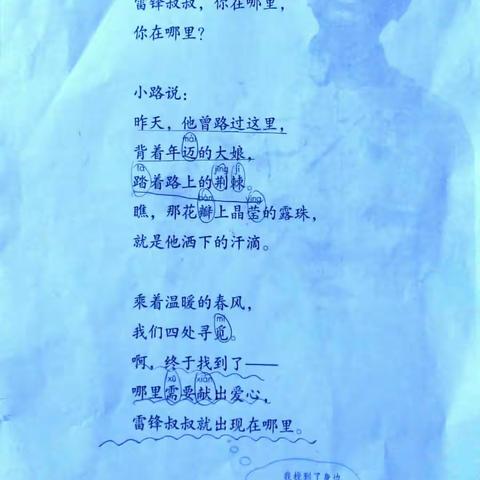 雷锋叔叔，你在哪里，
你在哪里？
小路说：
昨天，他曾路过这里，
mài
背着年迈的大娘，
tà jīng jí
踏着路上的荆棘。
bàn yíng
瞧，那花瓣上晶莹的露珠，
就是他洒下的汗滴。
乘着温暖的春风，
mì
我们四处寻觅。
啊，终于找到了——
xū xiàn
哪里需要献出爱心，
雷锋叔叔就出现在哪里。
我找到了身边